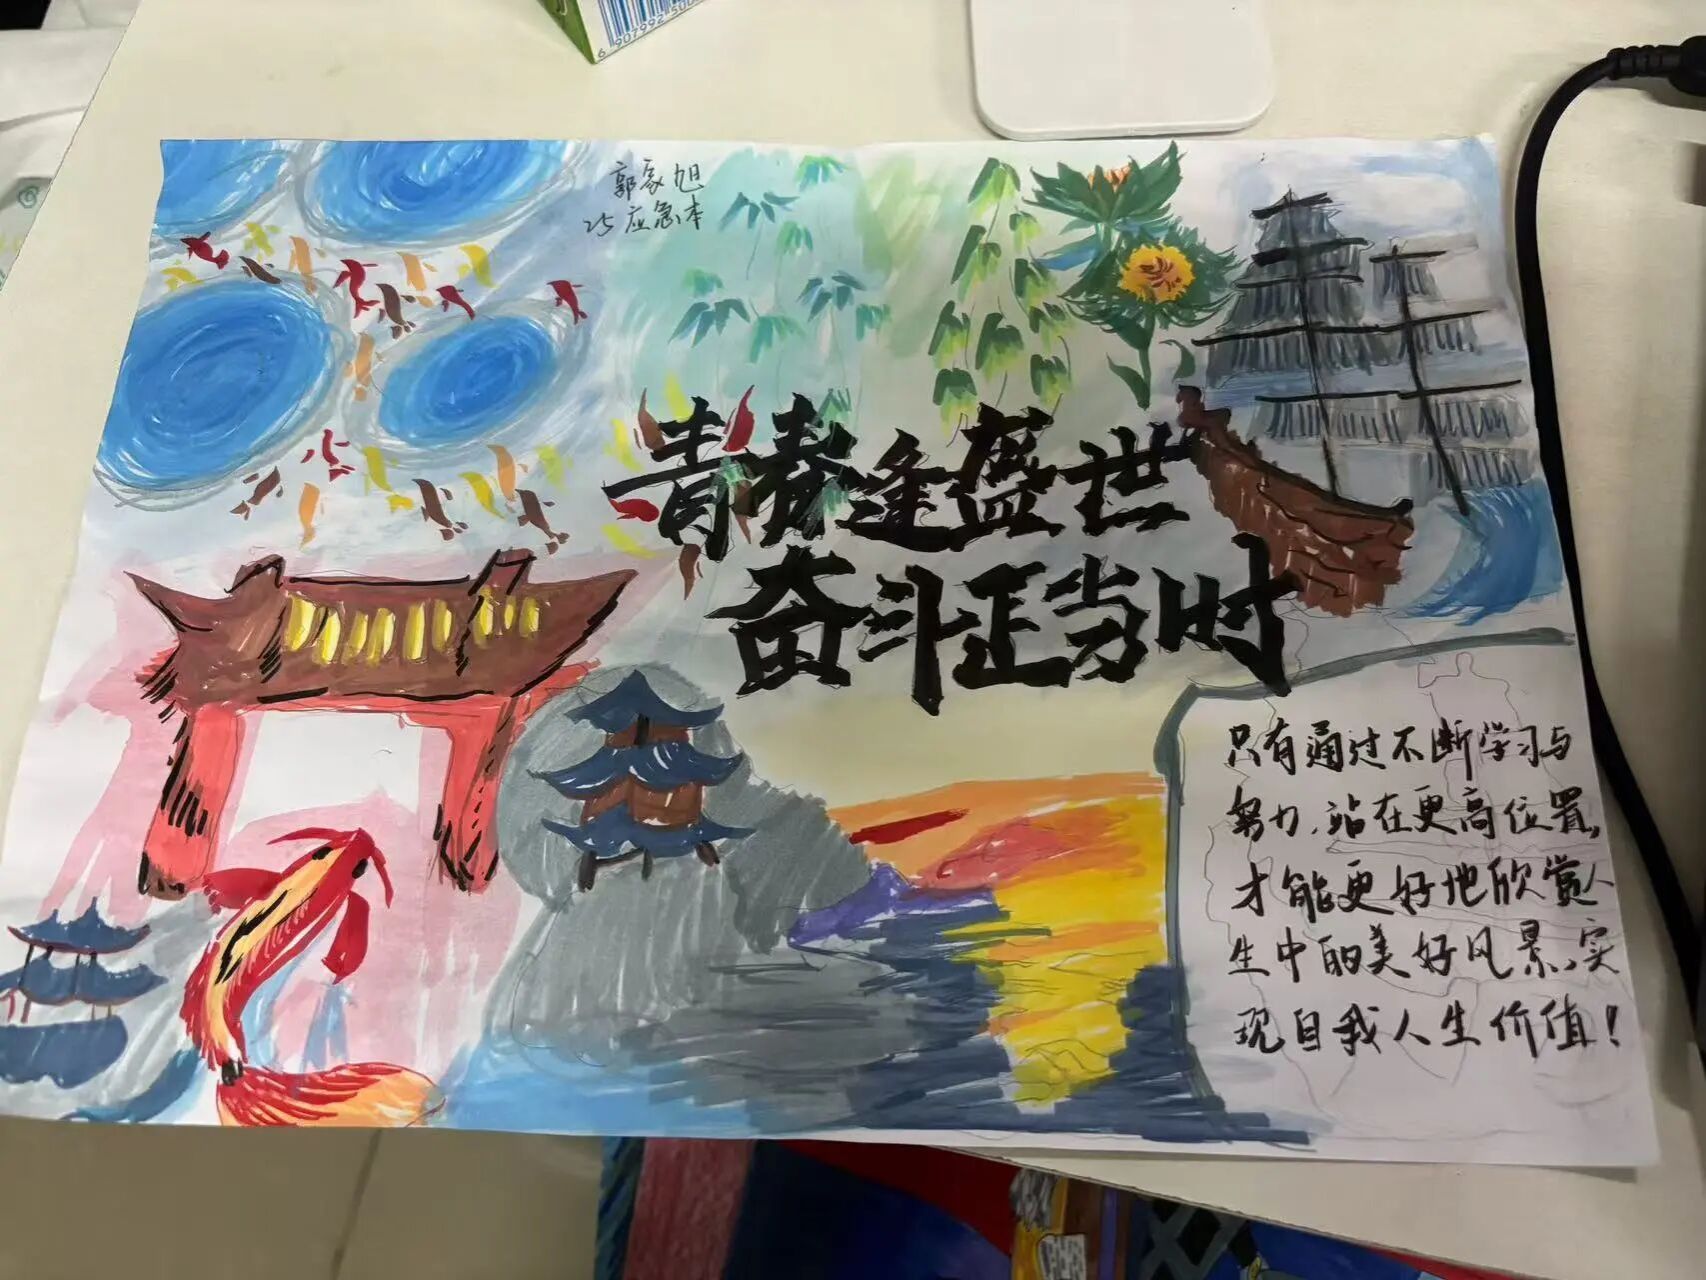 6 907992 500
郭家旭
25应急本
青春逢盛世
奋斗正当时
只有通过不断学习与
努力,站在更高位置,
才能更好地欣赏人
生中的美好风景,实
现自我人生价值!